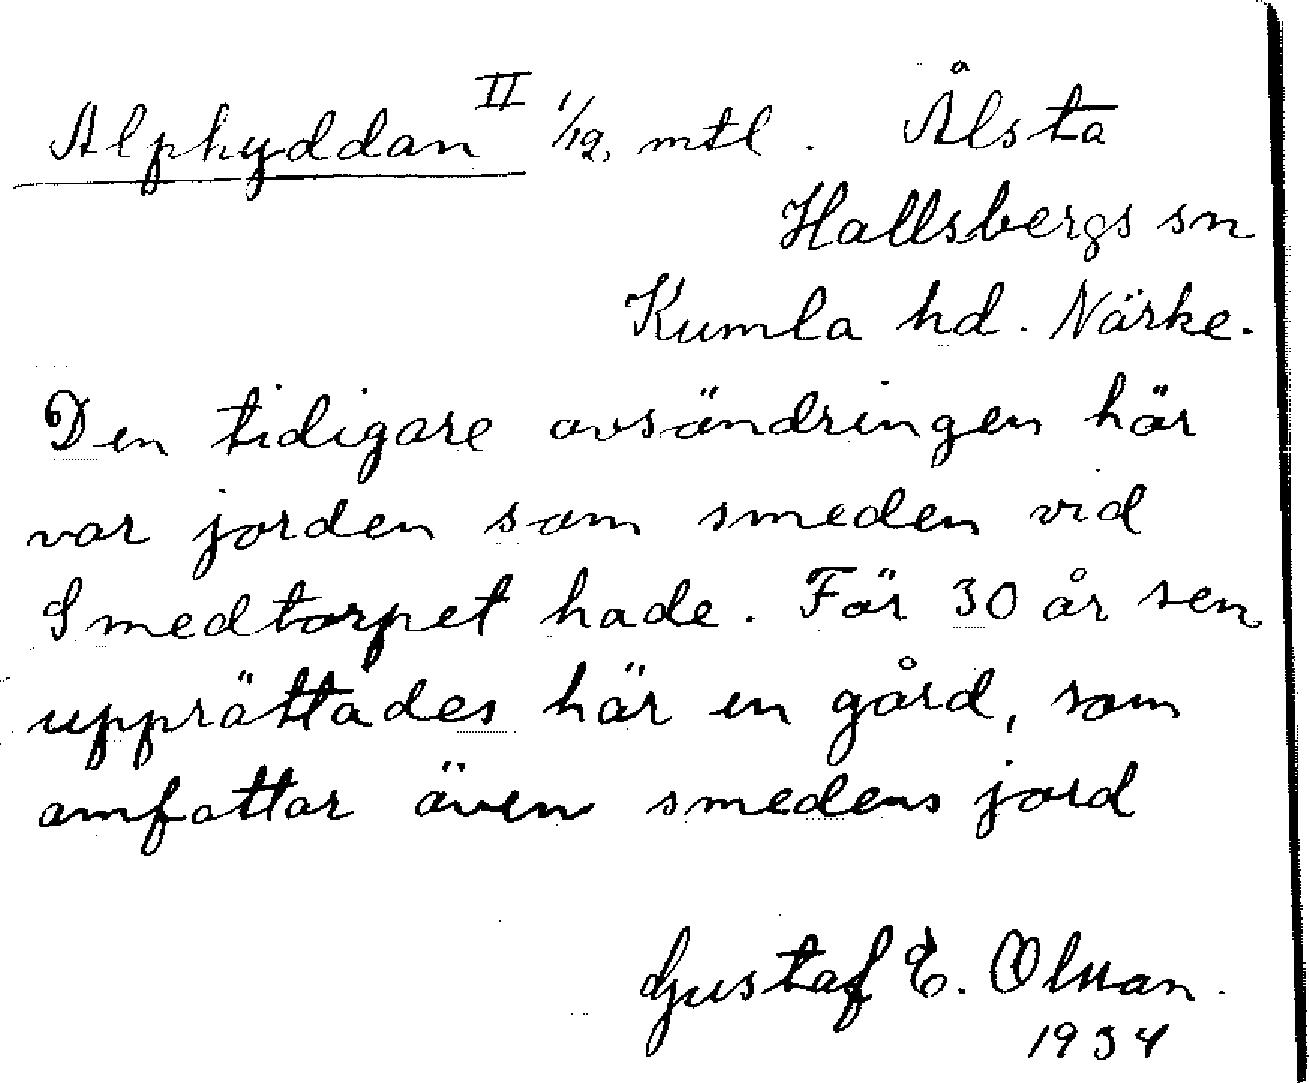 Alphyddan II 1/12, mtl. Ålsta
Hallsbergs sn
Kumla hd. Närke.
Den tidigare avsöndringen här
var jorden som smeden vid
Smedtorpet hade. För 30 år sen
upprättades här en gård, som
omfattar även smedens jord
Gustaf E. Olman.
1934